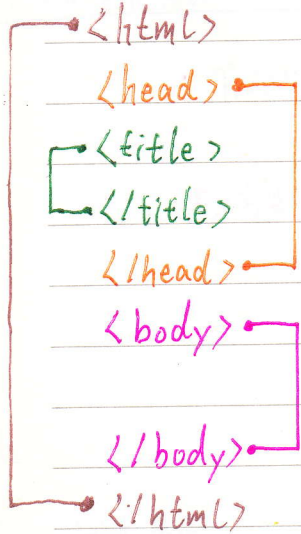 <html>
<head>
<title>
</title>
</head>
<body>
</body>
</html>